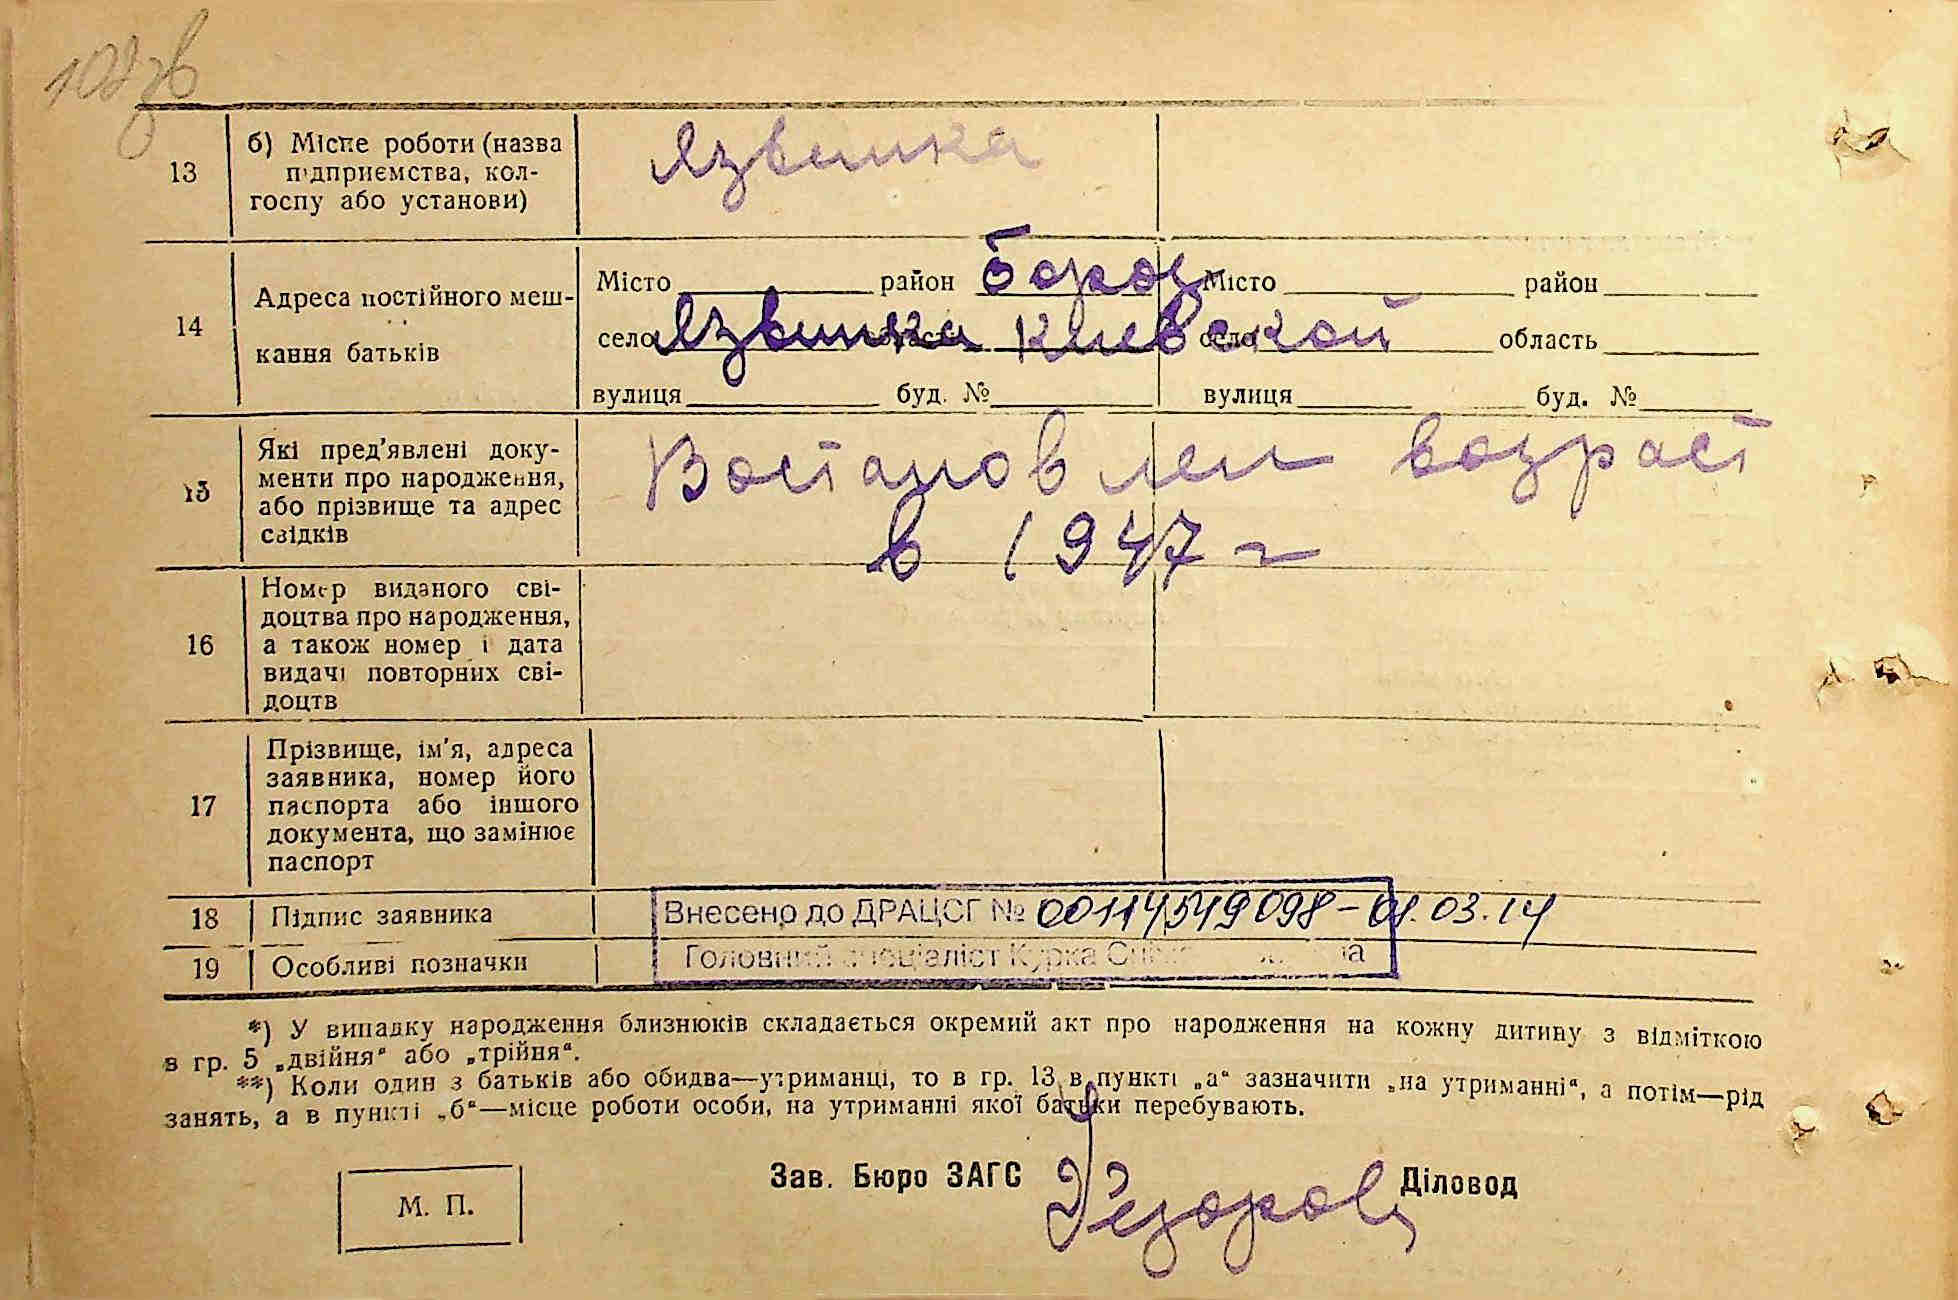 107зв
13 б) Місце роботи (назва підприємства, колгоспу або установи) Язвинка
14 Адреса постійного мешкання батьків
Місто район Бород Місто район
село Язвинка область Киевской село область
вулиця буд. № вулиця буд. №
15 Які пред'явлені документи про народження, або прізвище та адрес свідків Востановлен возраст
в 1947 г
16 Номер виданого свідоцтва про народження, а також номер і дата видачі повторних свідоцтв
17 Прізвище, ім'я, адреса заявника, номер його паспорта або іншого документа, що замінює паспорт
18 Підпис заявника Внесено до ДРАЦСГ № 00114549098 - 01.03.14
19 Особливі позначки Головний спеціаліст Курка
*) У випадку народження близнюків складається окремий акт про народження на кожну дитину з відміткою
в гр. 5 „двійня“ або „трійня“.
**) Коли один з батьків або обидва—утриманці, то в гр. 13 в пункті „а“ зазначити „на утриманні“, а потім—рід
занять, а в пункті „б“—місце роботи особи, на утриманні якої батьки перебувають.
Зав. Бюро ЗАГС Діловод
М. П.